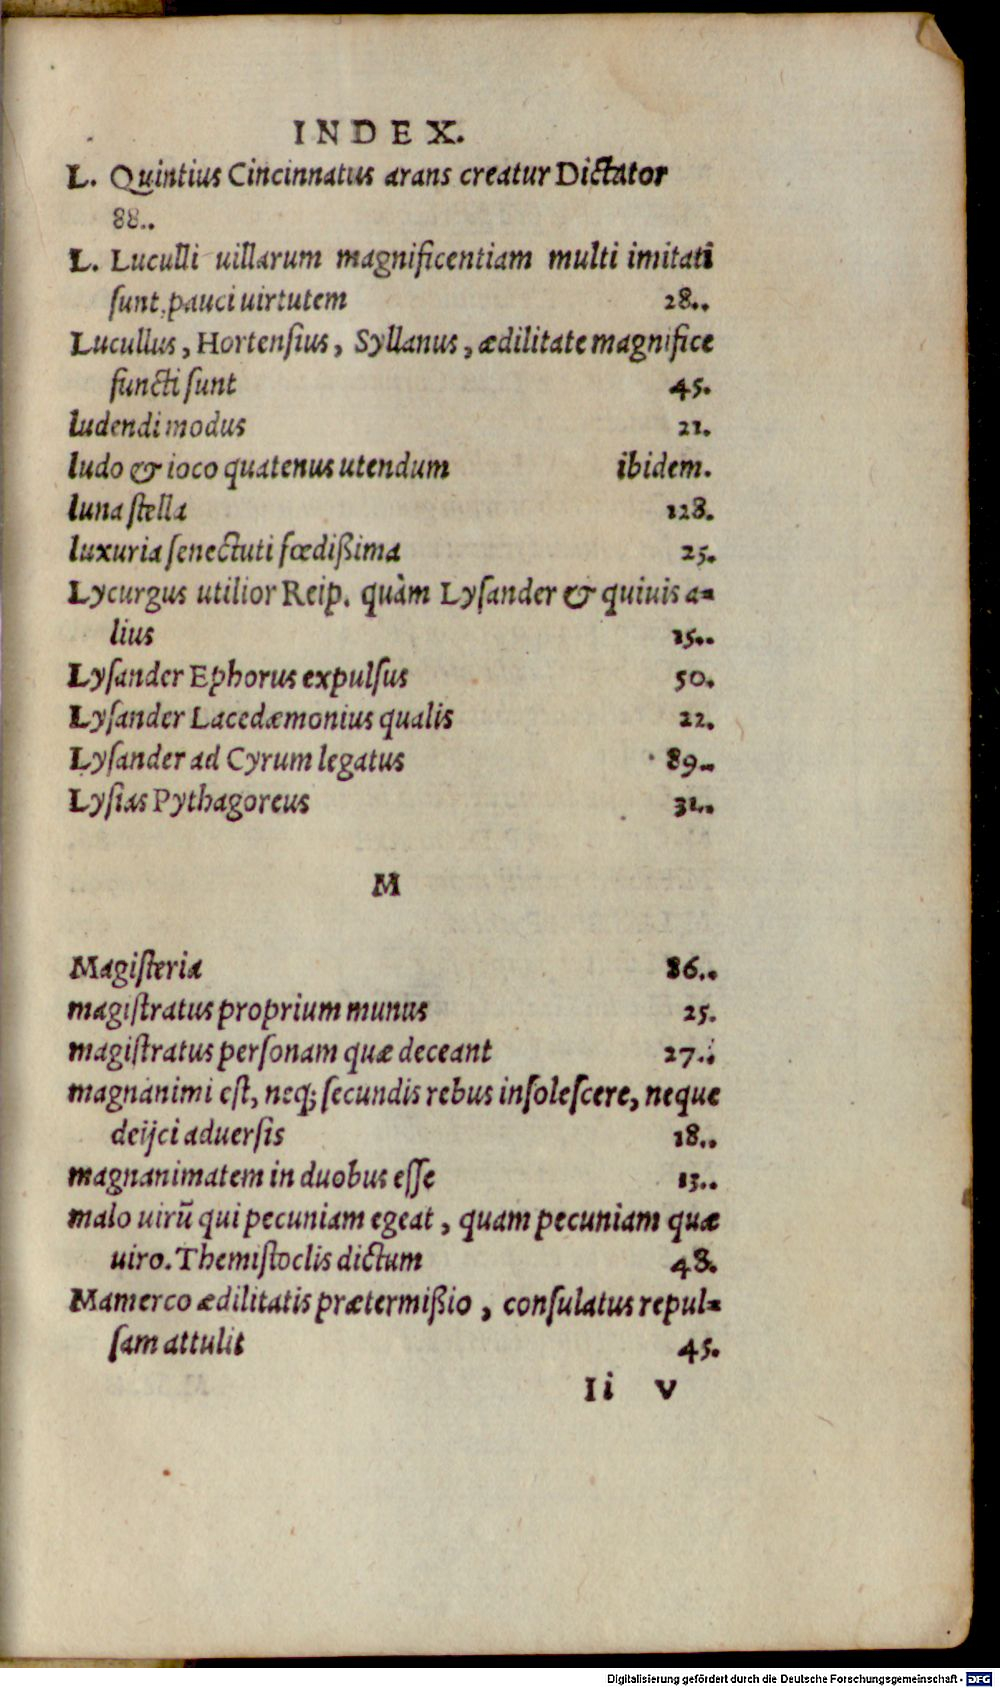 INDEX.
L. Quintius Cincinnatus arans creatur Dictator
88..
L. Luculli uillarum magnificentiam multi imitati
ſunt, pauci uirtutem 28..
Lucullus, Hortenſius, Syllanus, ædilitate magnifice
functi ſunt 45.
ludendi modus 21.
ludo & ioco quatenus utendum ibidem.
luna ſtella 128.
luxuria ſenectuti fœdißima 25.
Lycurgus utilior Reip. quàm Lyſander & quiuis a=
lius 15..
Lyſander Ephorus expulſus 50.
Lyſander Lacedæmonius qualis 22.
Lyſander ad Cyrum legatus 89..
Lyſias Pythagoreus 31..
M
Magiſteria 86..
magiſtratus proprium munus 25.
magiſtratus perſonam quæ deceant 27..
magnanimi eſt, neq; ſecundis rebus inſoleſcere, neque
deijci aduerſis 18..
magnanimatem in duobus eſſe 13..
malo uirũ qui pecuniam egeat, quam pecuniam quæ
uiro. Themiſtoclis dictum 48.
Mamerco ædilitatis prætermißio, conſulatus repul=
ſam attulit 45.
Ii v
Digitalisierung gefördert durch die Deutsche Forschungsgemeinschaft - DFG